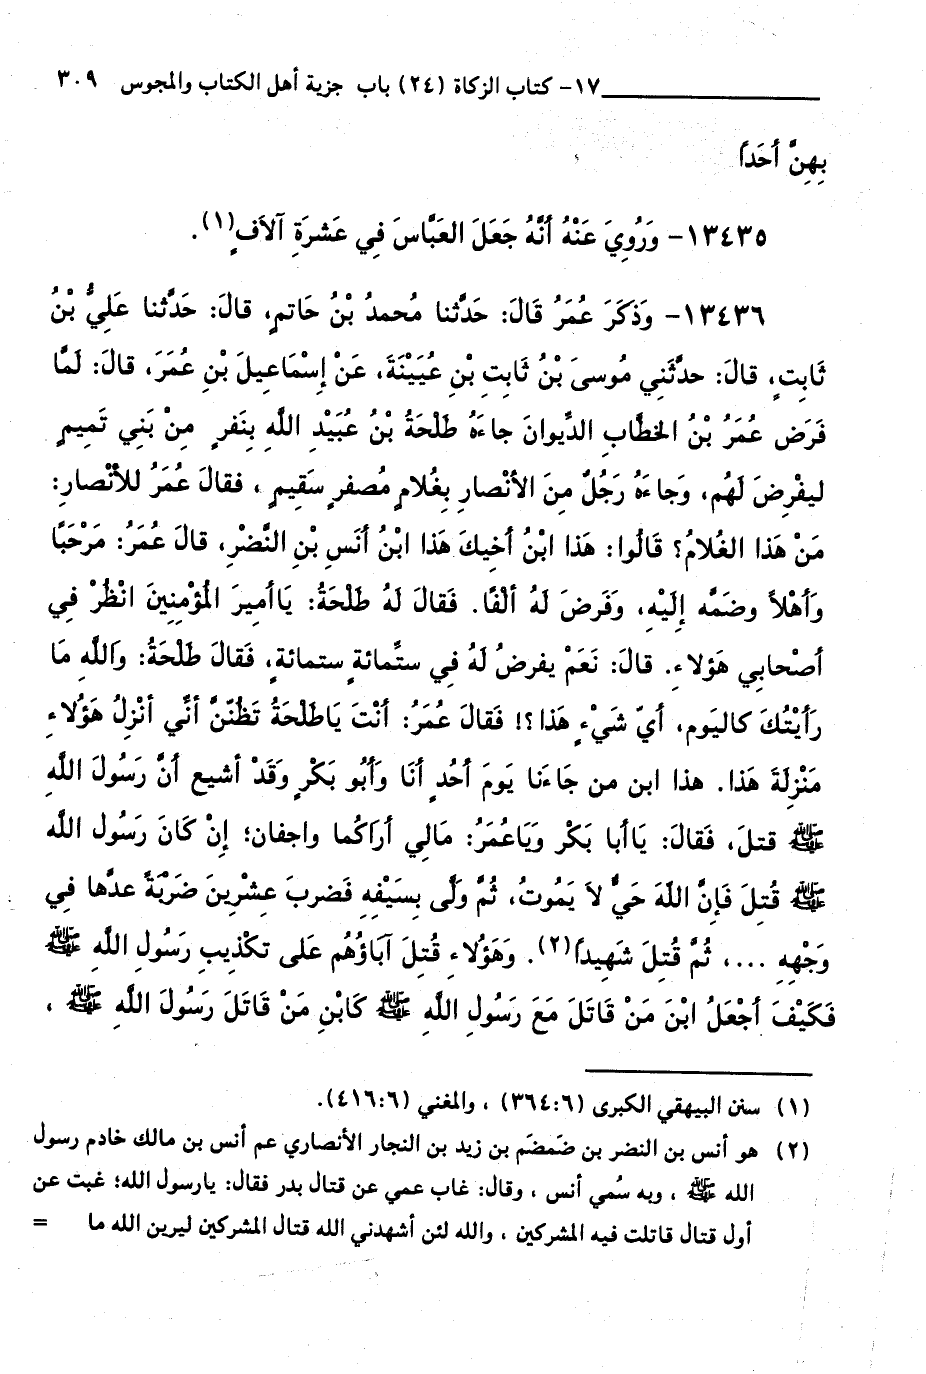 ١٧- كتاب الزكاة (٢٤) باب جزية أهل الكتاب والمجوس ٣٠٩
بِهِنَّ أَحَداً
١٣٤٣٥- وَرُوِيَ عَنْهُ أَنَّهُ جَعَلَ العَبَّاسَ فِي عَشَرَةِ آلاَفٍ(١).
١٣٤٣٦- وَذَكَرَ عُمَرُ قَالَ: حَدَّثنا مُحمدُ بْنُ حَاتمٍ، قالَ: حَدَّثنا عَلِيُّ بْنُ
ثَابتٍ، قالَ: حدَّثَنِي مُوسىَ بْنُ ثَابتِ بْنِ عُيَيْنَةَ، عَنْ إِسْمَاعيلَ بْنِ عُمَرَ، قالَ: لَمَّا
فَرَض عُمَرُ بْنُ الخطَّابِ الدِّيوانَ جاءَهُ طَلْحَةُ بْنُ عُبَيْدِ اللَّهِ بِنَفرٍ مِنْ بَنِي تَميمٍ
ليفْرِضَ لَهُم، وَجاءَهُ رَجُلٌ منَ الأنْصارِ بِغُلامٍ مُصفرٍ سَقِيمٍ ، فقالَ عُمَرُ للأنْصارِ:
مَنْ هَذا الغُلامُ؟ قَالُوا: هَذا ابْنُ أخيكَ هَذا ابْنُ أنَسِ بْنِ النَّضْرِ، قالَ عُمَرُ: مَرْحَبًا
وَأَهْلاً وضَمَّه إِلَيْهِ، وَفَرضَ لَهُ ألْفًا. فَقالَ لَهُ طَلْحَةُ: يَاأميرَ المُؤْمِنِينَ انْظُرْ فِي
أصْحابِي هَؤلاءِ. قالَ: نَعَمْ يفرضُ لَهُ في ستَّمائةٍ ستمائة، فَقالَ طَلْحَةُ: وَاللَّهِ مَا
رَأَيْتُكَ كاليَوم، أيّ شَيْءٍ هَذا؟! فَقالَ عُمَرُ: أنْتَ يَاطَلْحَةُ تَظُنّنَّ أنَّي أنْزِلُ هَؤُلاءِ
مَنْزِلَةَ هَذا. هذا ابن من جَاءَنا يَومَ أُحُدٍ أنَا وَأَبُو بَكْرٍ وَقَدْ أشيع أنَّ رَسُولَ اللَّهِ
ﷺ قتلَ، فَقالَ: يَاأَبا بَكْر وَيَاعُمَرُ: مَالي أرَاكُما واجفان؛ إنْ كَانَ رَسُول اللَّه
ﷺ قُتلَ فَإنَّ اللَّهَ حَيٌّ لاَ يَمُوتُ، ثُمَّ وَلَّى بِسَيْفِهِ فَضربَ عشْرينَ ضَرْبَةً عدَّها فِي
وَجْهِهِ ...، ثُمَّ قُتلَ شَهيداً(٢). وَهَؤُلاءِ قُتلَ آبَاؤُهُم عَلى تكْذيبِ رَسُولِ اللَّهِ ﷺ
فَكَيْفَ أجْعَلُ ابْنَ مَنْ قَاتَلَ مَعَ رَسُولِ اللَّهِ ﷺ كَابْنِ مَنْ قَاتَلَ رَسُولَ اللَّهِ ﷺ ،
(١) سنن البيهقي الكبرى (٣٦٤:٦) ، والمغني (٤١٦:٦).
(٢) هو أنس بن النضر بن ضَمضَم بن زيد بن النجار الأنصاري عم أنس بن مالك خادم رسول
الله ﷺ ، وبه سُمي أنس ، وقال: غاب عمي عن قتال بدر فقال: يارسول الله؛ غبت عن
أول قتال قاتلت فيه المشركين ، والله لئن أشهدني الله قتال المشركين ليرين الله ما =